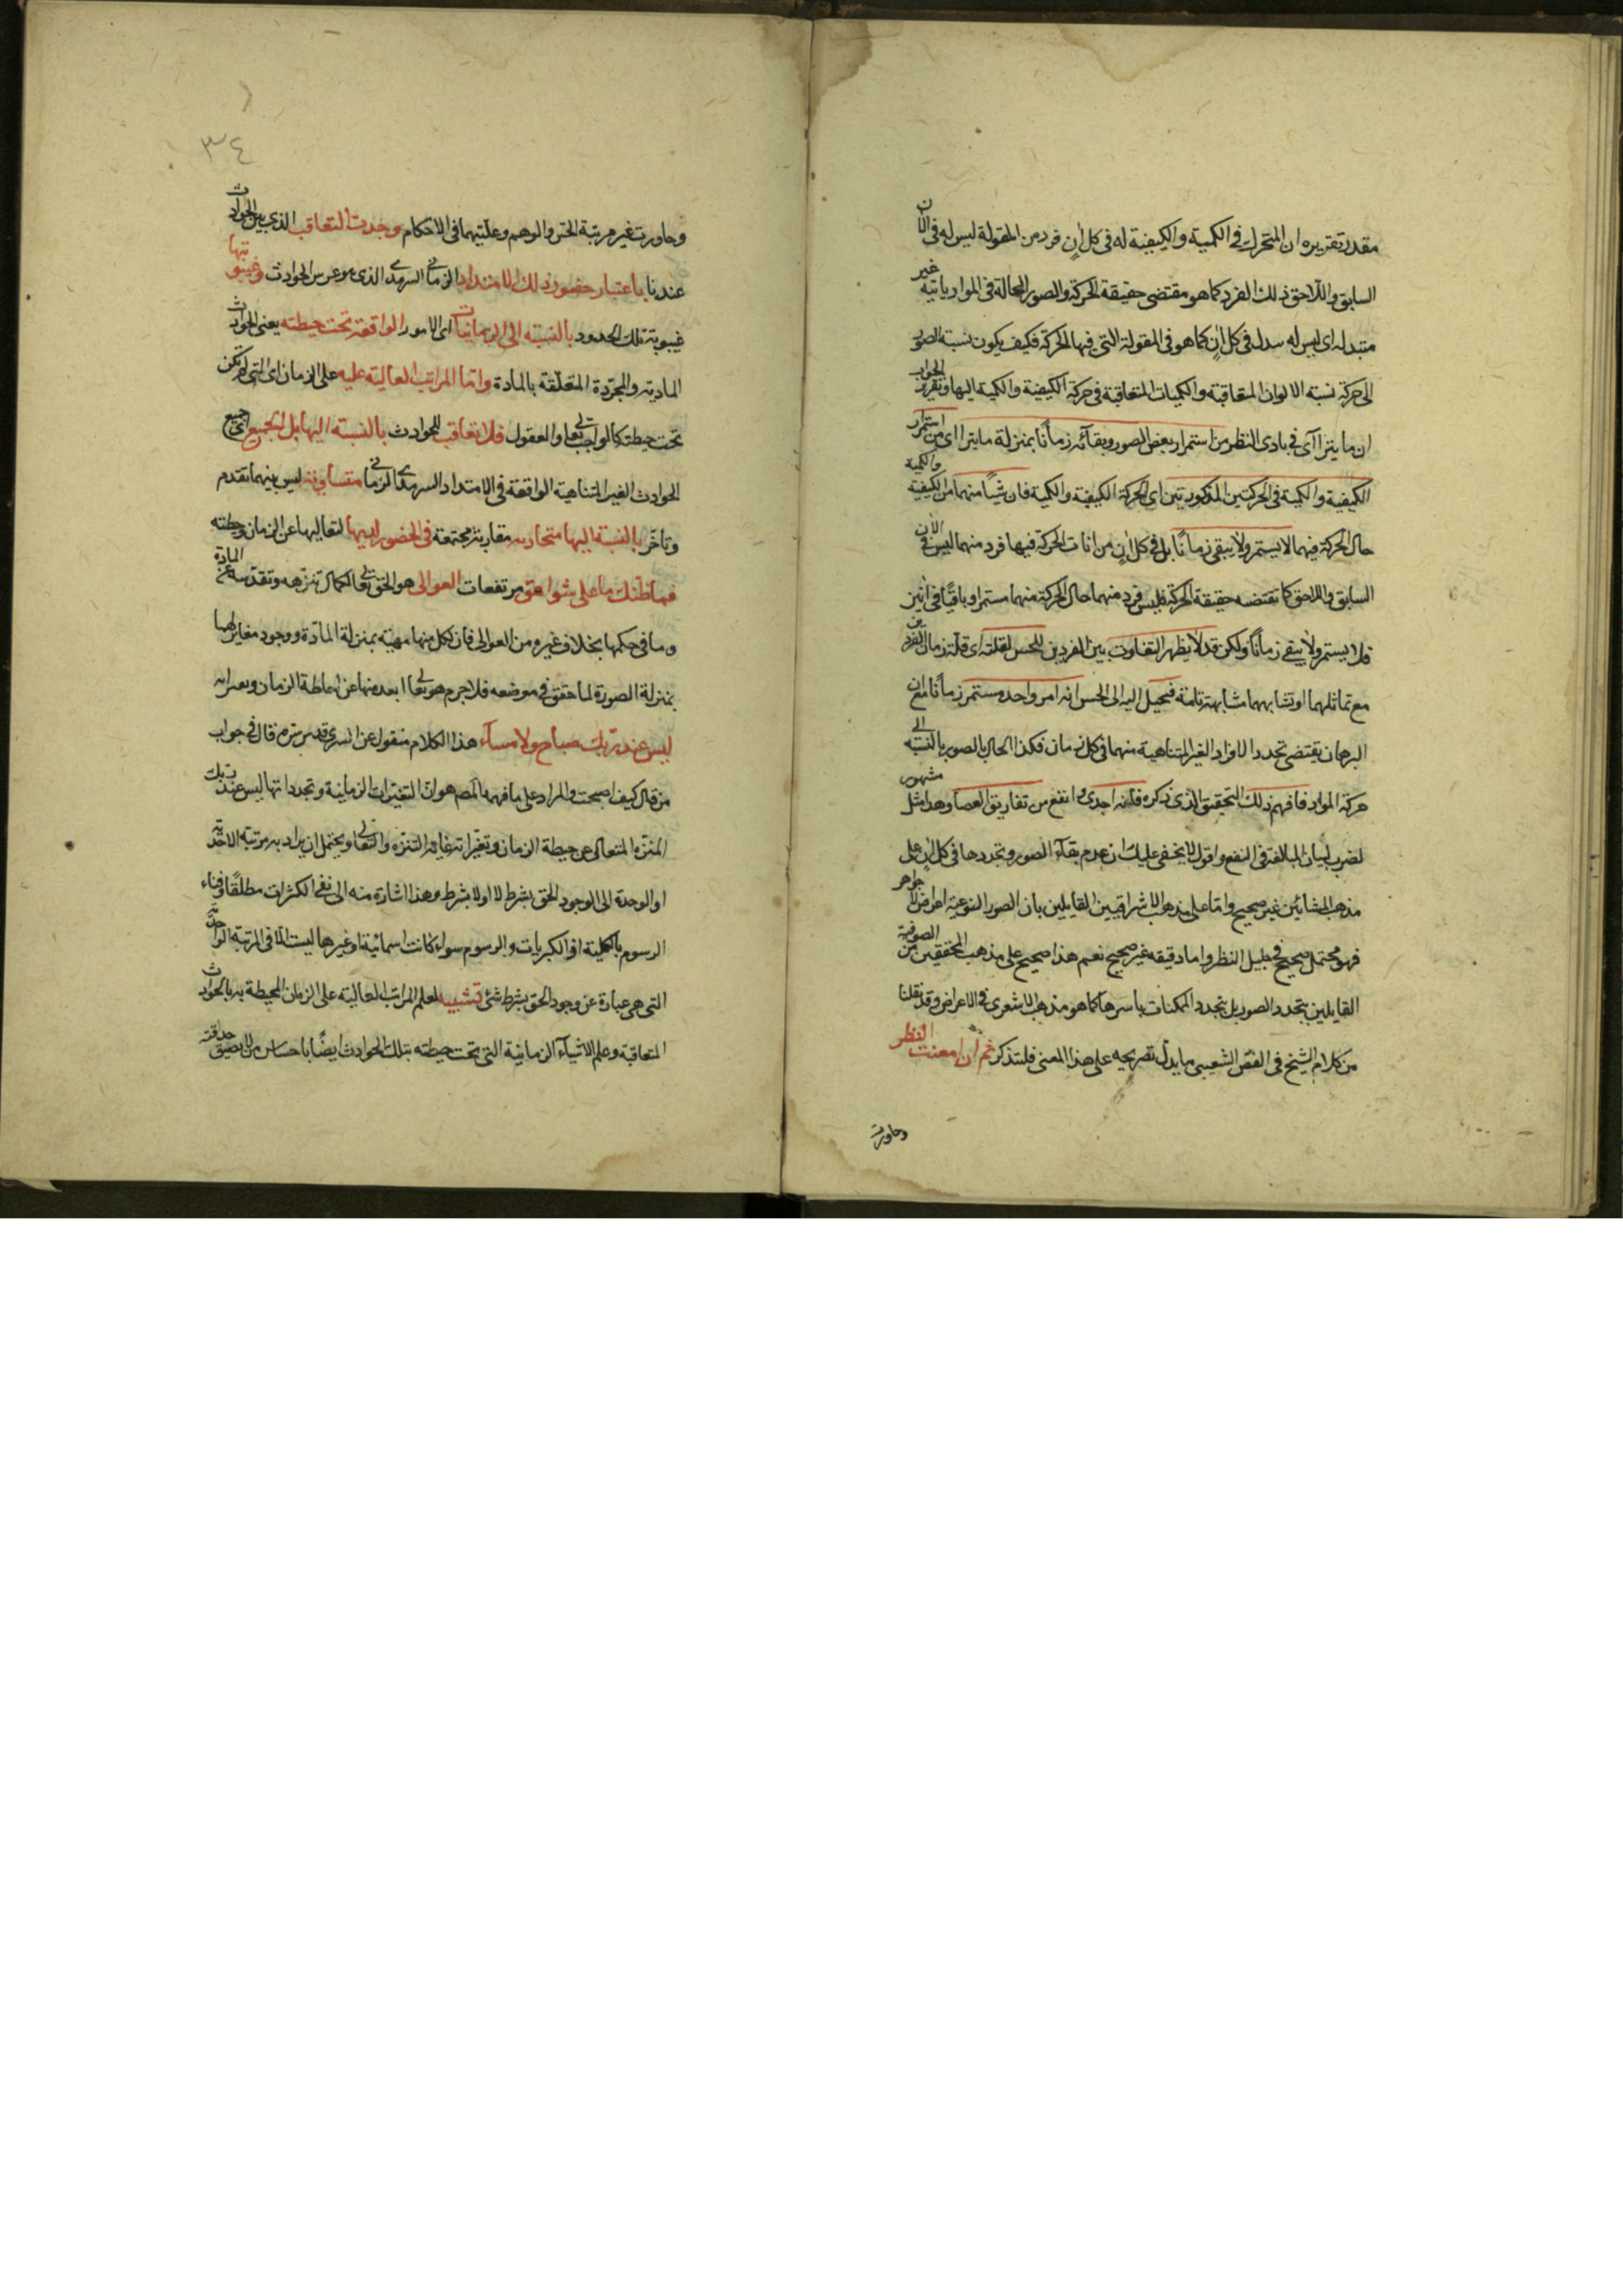 مقدر تقريره ان المتحرك في الكمية والكيفية له في كل آنٍ فرد من المقولة ليس له في الآن
السابق واللاحق ذلك الفرد كما هو مقتضى حقيقة الحركة والصور الحالة في المواد باتية غير
متبدله اى ليس له بدله في كل آنٍ كما هو في المقولة التي فيها الحركة فكيف يكون نسبة الصور
الى حركة نسبة الالوان المتعاقبة والكميات المتعاقبة في حركة الكيفية والكمية اليها وتقرير الجواب
ان ما يترا آى في بادى النظر من استمرار بعض الصور وبقائه زمانًا بمنزلة ما يترا اى من استمرار
الكيفية والكمية في الحركتين المذكورتين اى الحركة الكيفية والكمية فان شيئًا منهما من الكيفية والكمية
حال الحركة فيهما لا يستمر ولا يبقى زمانًا بل في كل آنٍ من انات الحركة فيها فرد منهما ليس في الآن
السابق واللاحق كما تقتضيه حقيقة الحركة فليس فرد منهما حال الحركة منهما مستمرا وباقيًا في آنين
فلا يستمر ولا يبقى زمانًا ولكن قد لا يظهر التفاوت بين الفردين للحس لقلته اى قلة زمان الفردين
مع تماثلهما او تشابههما مشابهة تامة فيخيل اليه الى الحس انه امر واحد مستمر زمانًا مع ان
البرهان يقتضى تجدد الافراد الغير المتناهية منهما في كل زمان فكذا الحال بالصور بالنسبة الى
حركة المواد فافهم ذلك التحقيق الذى ذكره فانه اجدى وانفع من تفاريق العصا وهذا مثل مشهور
لضرب لبيان المبالغة في النفع واقول لا يخفى عليك ان عدم بقاء الصور وتجددها في كل آن على
مذهب المشائين غير صحيح واما على مذهب الاشراقيين القايلين بان الصور النوعية اعراض لا جواهر
فهو محتمل صحيح في جليل النظر واما دقيقه غير صحيح نعم هذا صحيح على مذهب المحققين من الصوفية
القايلين بتجدد الصور بل بتجدد الممكنات باسرها كما هو مذهب الاشعرى في الاعراض وقد نقلنا
من كلام الشيخ في الفص الشعيبى ما يدل تصريحه على هذا المعنى فلتتذكر ثم ان امعنت النظر
وجاوزت
٣٤
وجاوزت غير مرتبة الحس والوهم وغلبتهما في الاحكام وجدت التعاقب الذى بين الحوادث
عندنا باعتبار حضور ذلك الامتداد الزمانى السرمدى الذى هو عرس الحوادث وغيبوبتها
غيبوبة تلك الحدود بالنسبة الى الزمانيات اى الامور الواقعة تحت حيطته يعنى الحوادث
المادية والمجردة المتعلقة بالمادة واما المراتب العالية عليه على الزمان اى التي لم تكن
تحت حيطته كالواجب تعالى والعقول فلا تعاقب للحوادث بالنسبة اليها بل الجميع اى جميع
الحوادث الغير المتناهية الواقعة في الامتداد السرمدى الزمانى متساوية ليس بينهما تقدم
وتأخر بالنسبة اليها متحاذيه مقارنة مجتمعة في الحضور لديها لتعاليها عن الزمان وحيطته
فما ظنك ما على شواهق مرتفعات العوالى هو الحق تعالى لكمال تنزهه وتقدسه عن المادة
وما في حكمها بخلاف غيره من العوالى فان لكل منها مهية بمنزلة المادة ووجود مغاير لها
بمنزلة الصورة لما حقق في موضعه فلا جرم هو تعالى ابعد منها عن احاطة الزمان وتغيراته
ليس عند ربك صباح ولا مساء هذا الكلام منقول عن السرى قدس سره قال في جواب
من قال كيف اصبحت والمراد على ما فهمه المصـ هو ان التغيرات الزمانية وتجدداتها ليس عند ربك
المنزه المتعالى عن حيطة الزمان وتغيراته غاية التنزه والتعالى ويحتمل ان يراد به مرتبة الاحدية
او الوحدة الى الوجود الحق بشرط لا او لا بشرط وهذا اشارة منه الى نفى الكثرات مطلقًا وفناء
الرسوم بالكلية اذ الكبريات والرسوم سواء كانت اسمائية او غيرها ليست الا في المرتبة الواحدية
التي هي عبارة عن وجود الحق بشرط شئ تشبيه لعلم المراتب العالية على الزمان المحيطة به بالحوادث
المتعاقبة وعلم الاشياء الزمانية التي تحت حيطته بتلك الحوادث ايضًا باحساس من لا يضيق حدقته